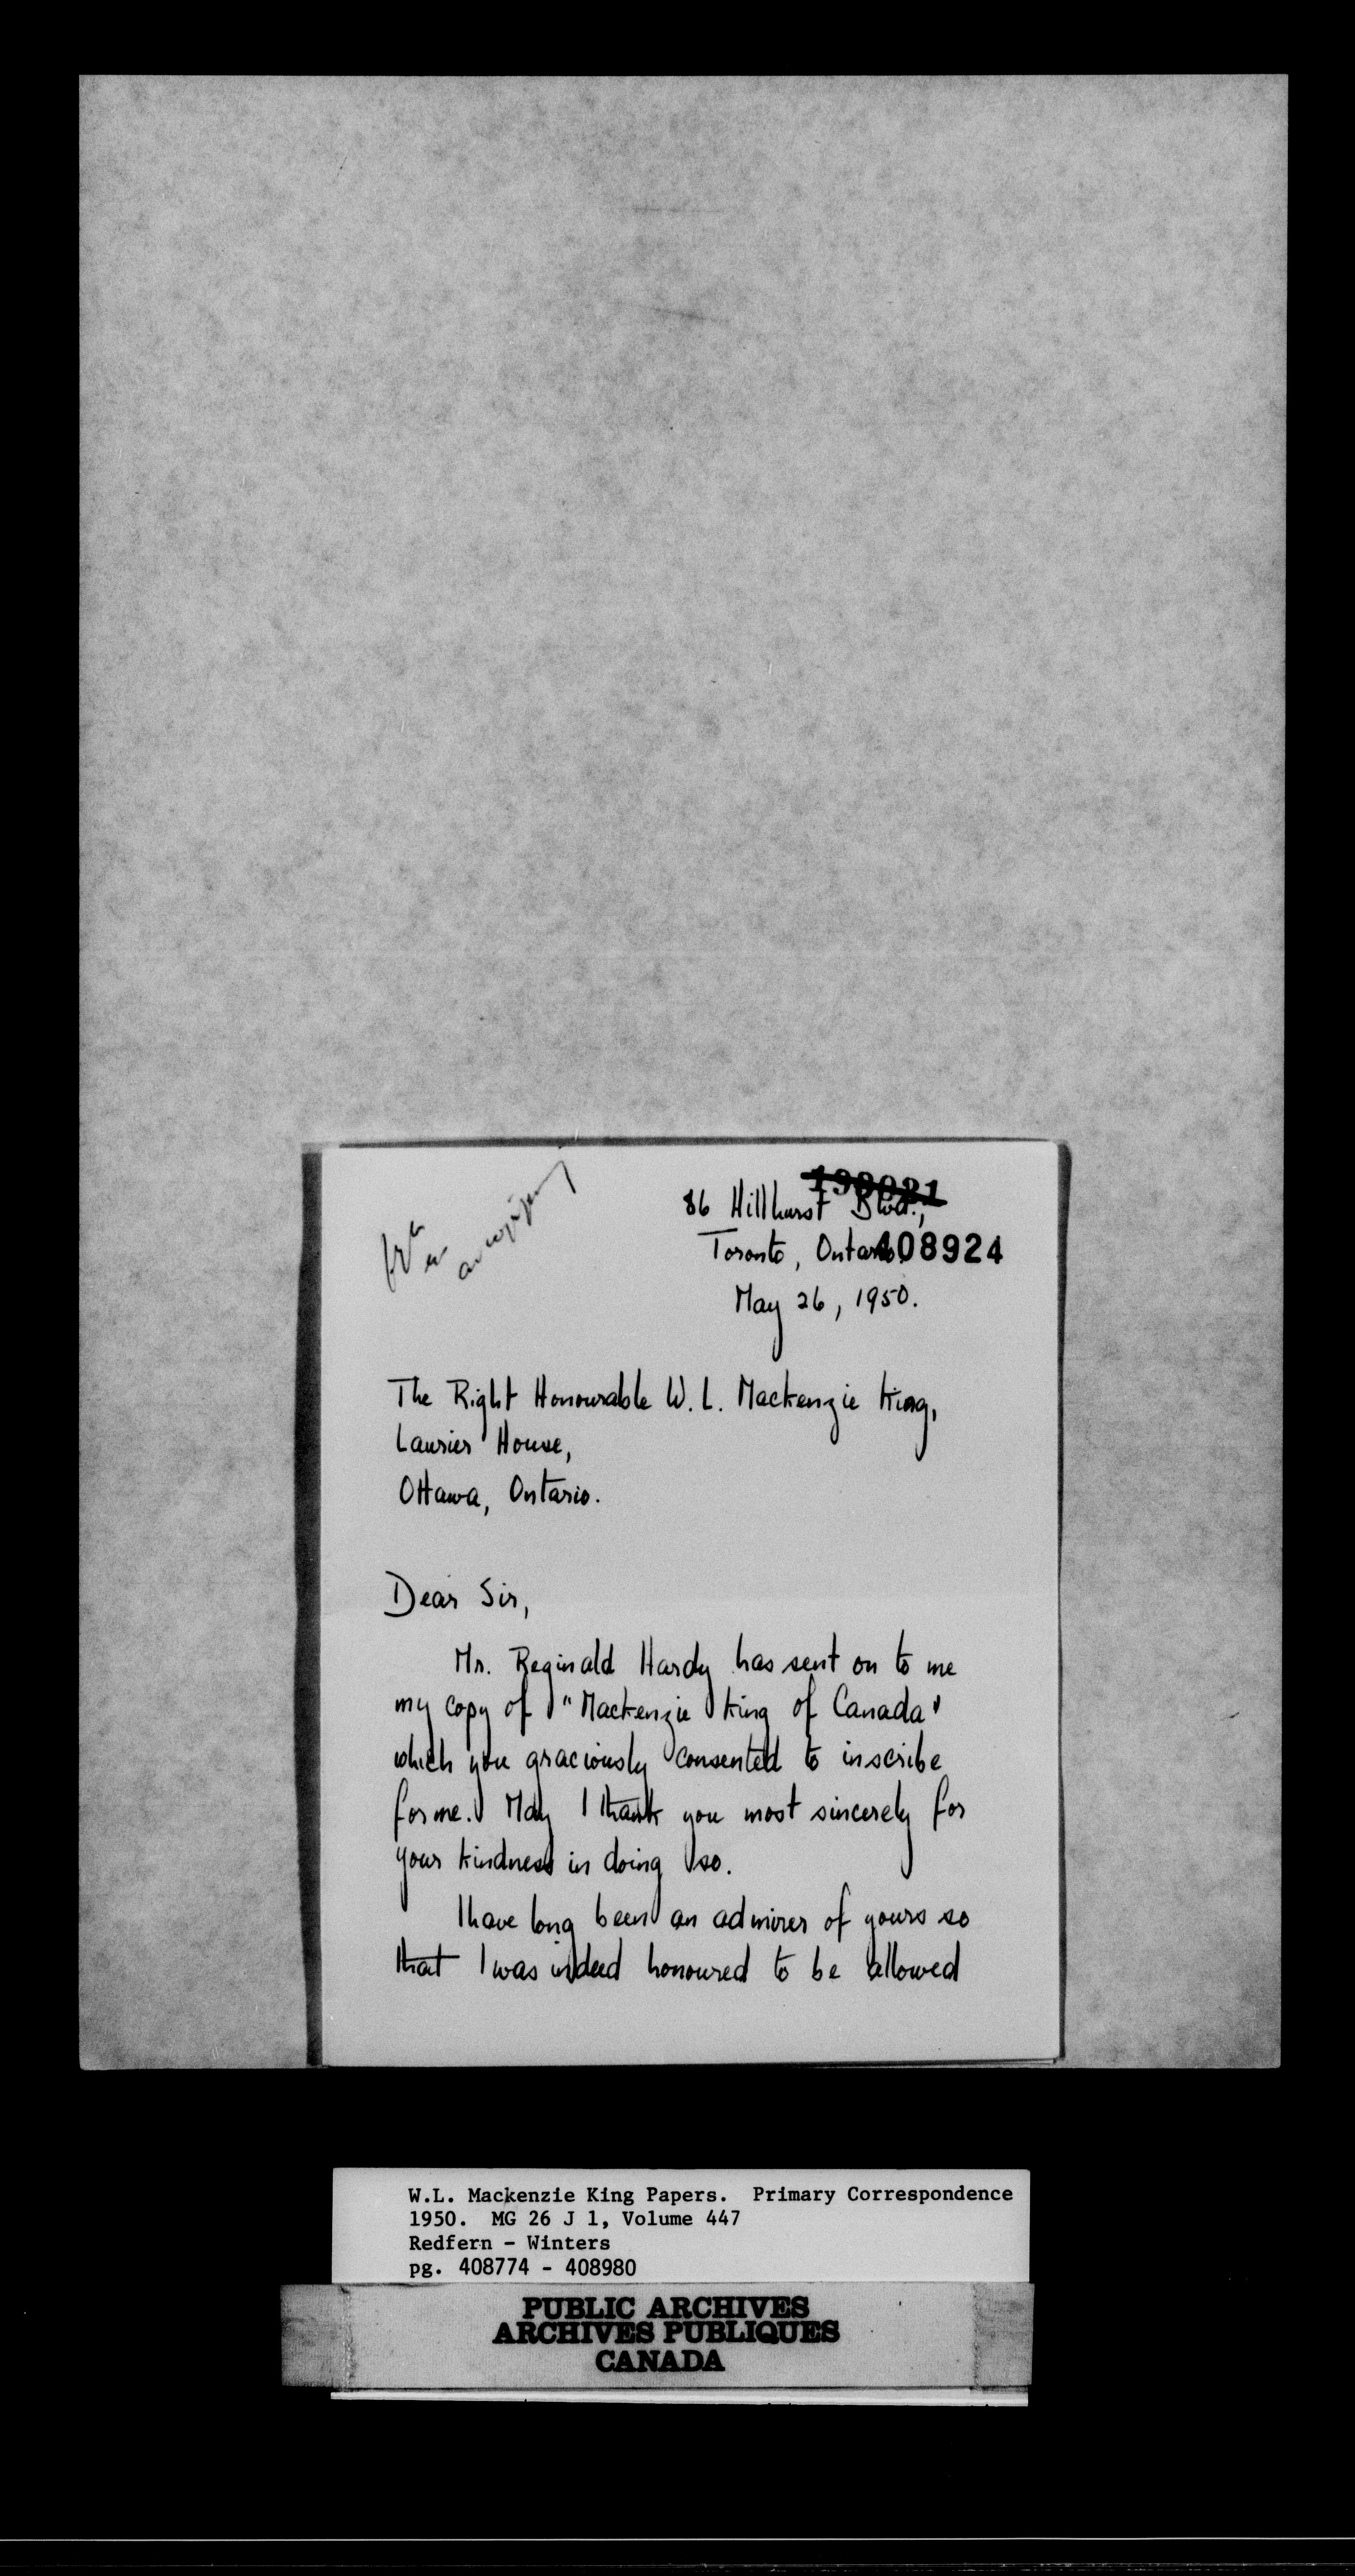 198021
86 Hillhurst Blvd.,
Toronto, Ontario.
408924
May 26, 1950.
The Right Honourable W. L. Mackenzie King,
Laurier House,
Ottawa, Ontario.
Dear Sir,
Mr. Reginald Hardy has sent on to me
my copy of "Mackenzie King of Canada"
which you graciously consented to inscribe
for me. May I thank you most sincerely for
your kindness in doing so.
I have long been an admirer of yours so
that I was indeed honoured to be allowed
W.L. Mackenzie King Papers. Primary Correspondence
1950. MG 26 J 1, Volume 447
Redfern - Winters
pg. 408774 - 408980
PUBLIC ARCHIVES
ARCHIVES PUBLIQUES
CANADA